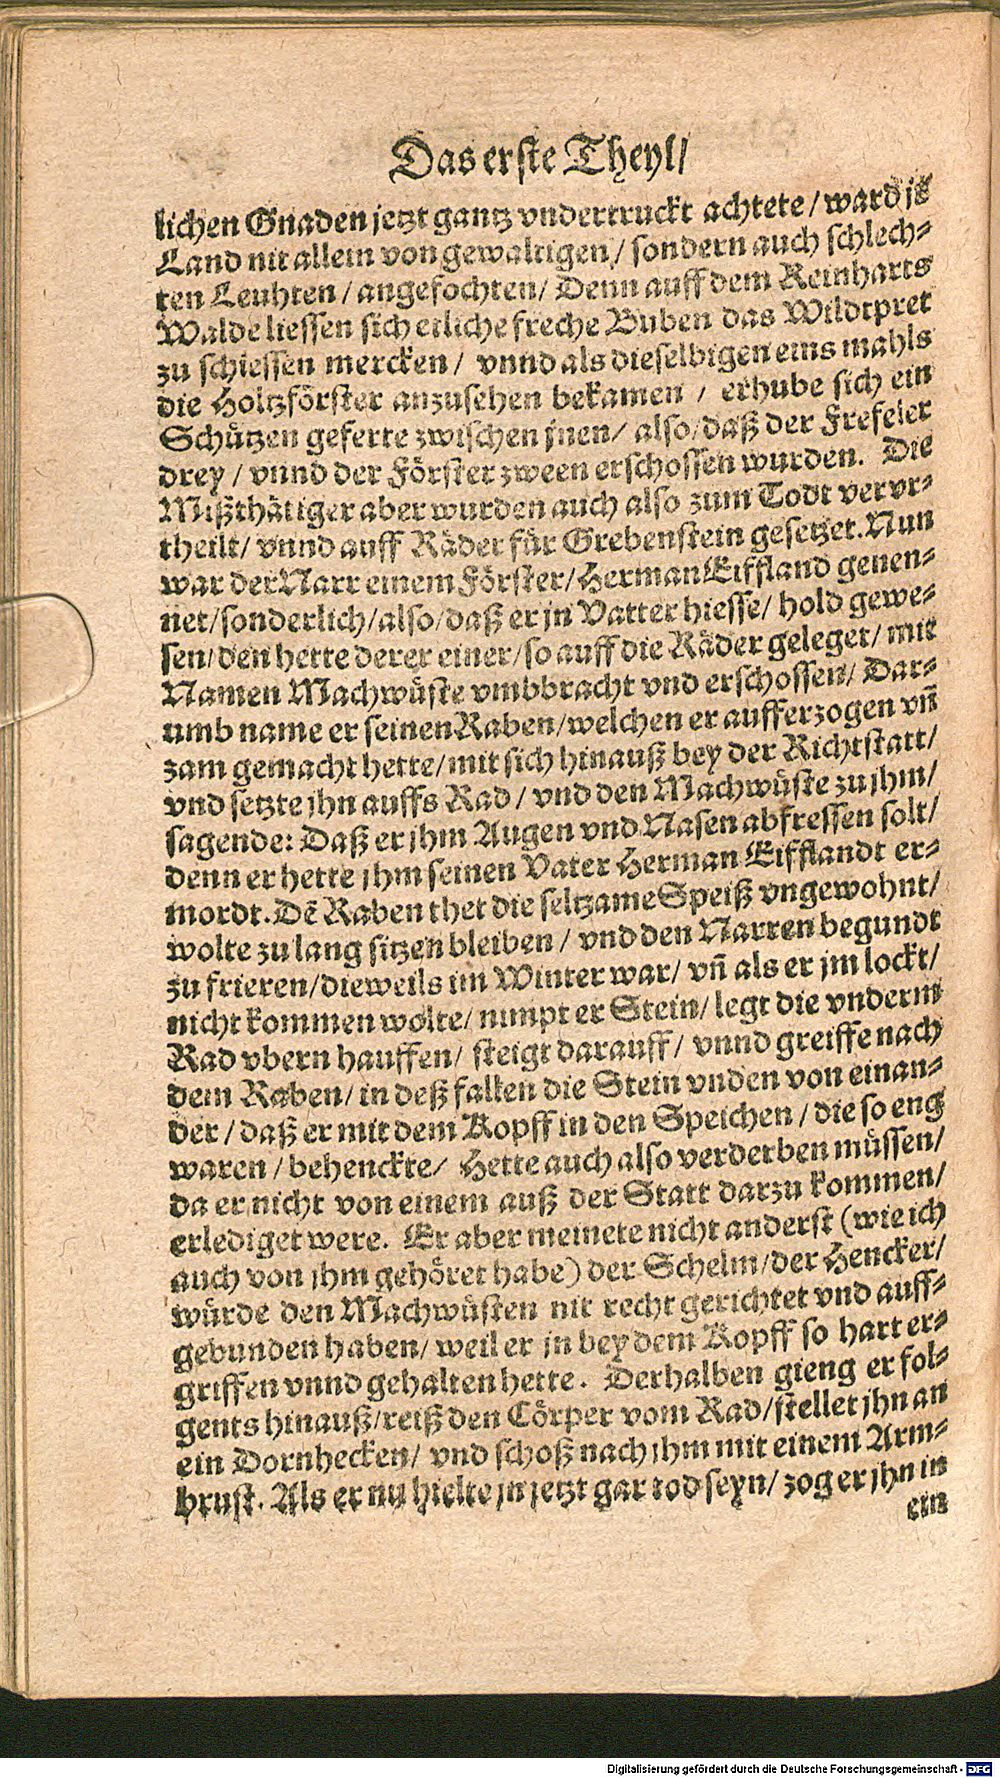 Das erste Theyl/
lichen Gnaden jetzt gantz vndertruckt achtete/ ward js
Land nit allein von gewaltigen/ sondern auch schlech-
ten Leuhten/ angefochten/ Denn auff dem Reinharts
Walde liessen sich etliche freche Buben das Wildtpret
zu schiessen mercken/ vnnd als dieselbigen eins mahls
die Holtzförster anzusehen bekamen/ erhube sich ein
Schützen geferte zwischen jnen/ also/ daß der Frefeler
drey/ vnnd der Förster zween erschossen wurden. Die
Mißthätiger aber wurden auch also zum Todt vervr-
theilt/ vnnd auff Räder für Grebenstein gesetzet. Nun
war der Narr einem Förster/ Herman Eiffland genen-
net/ sonderlich/ also/ daß er jn Vatter hiesse/ hold gewe-
sen/ den hette derer einer/ so auff die Räder geleget/ mit
Namen Machwüste vmbbracht vnd erschossen/ Dar-
umb name er seinen Raben/ welchen er aufferzogen vñ
zam gemacht hette/ mit sich hinauß bey der Richtstatt/
vnd setzte jhn auffs Rad/ vnd den Machwüste zu jhm/
sagende: Daß er jhm Augen vnd Nasen abfressen solt/
denn er hette jhm seinen Vater Herman Eifflandt er-
mordt. Dē Raben thet die seltzame Speiß vngewohnt/
wolte zu lang sitzen bleiben/ vnd den Narren begundt
zu frieren/ dieweils im Winter war/ vñ als er jm lockt/
nicht kommen wolte/ nimpt er Stein/ legt die vnderm
Rad vbern hauffen/ steigt darauff/ vnnd greiffe nach
dem Raben/ in deß fallen die Stein vnden von einan-
der/ daß er mit dem Kopff in den Speichen/ die so eng
waren/ behenckte/ Hette auch also verderben müssen/
da er nicht von einem auß der Statt darzu kommen/
erlediget were. Er aber meinete nicht anderst (wie ich
auch von jhm gehöret habe) der Schelm/ der Hencker/
würde den Machwüsten nit recht gerichtet vnd auff-
gebunden haben/ weil er jn bey dem Kopff so hart er-
griffen vnnd gehalten hette. Derhalben gieng er fol-
gents hinauß/ reiß den Cörper vom Rad/ stellet jhn an
ein Dornhecken/ vnd schoß nach jhm mit einem Arm-
brust. Als er nu hielte jn jetzt gar tod seyn/ zog er jhn in
ein
Digitalisierung gefördert durch die Deutsche Forschungsgemeinschaft - DFG